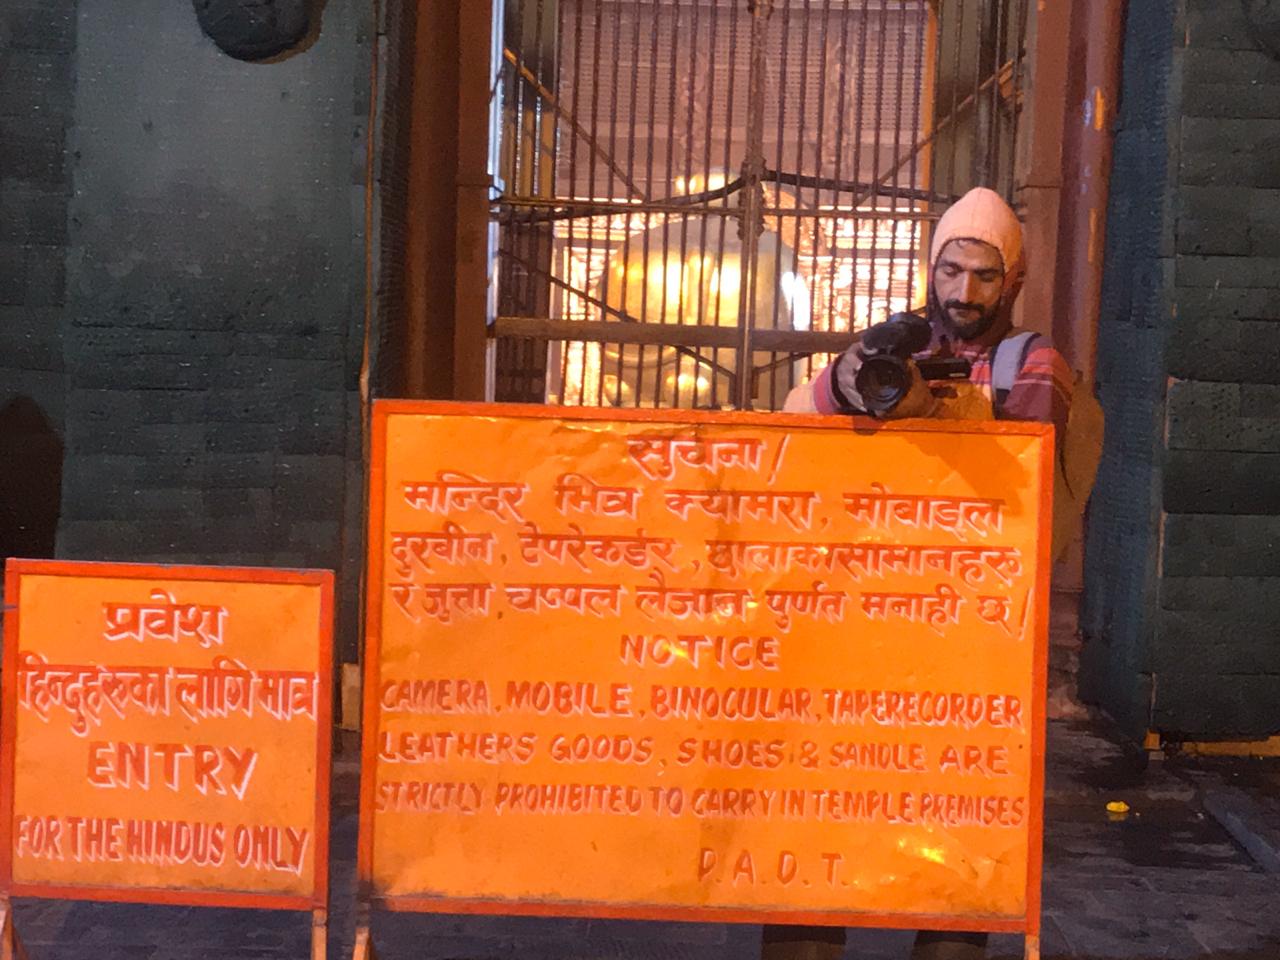 प्रवेश
हिन्दुहरुका लागि मात्र
ENTRY
FOR THE HINDUS ONLY
सुचना/
मन्दिर भित्र क्यामरा, मोबाइल
दुरबीन, टेपरेकर्डर, छालाका सामानहरु
र जुत्ता चप्पल लैजान पुर्णत मनाही छ/
NOTICE
CAMERA, MOBILE, BINOCULAR, TAPERECORDER
LEATHERS GOODS, SHOES & SANDLE ARE
STRICTLY PROHIBITED TO CARRY IN TEMPLE PREMISES
P.A.D.T.